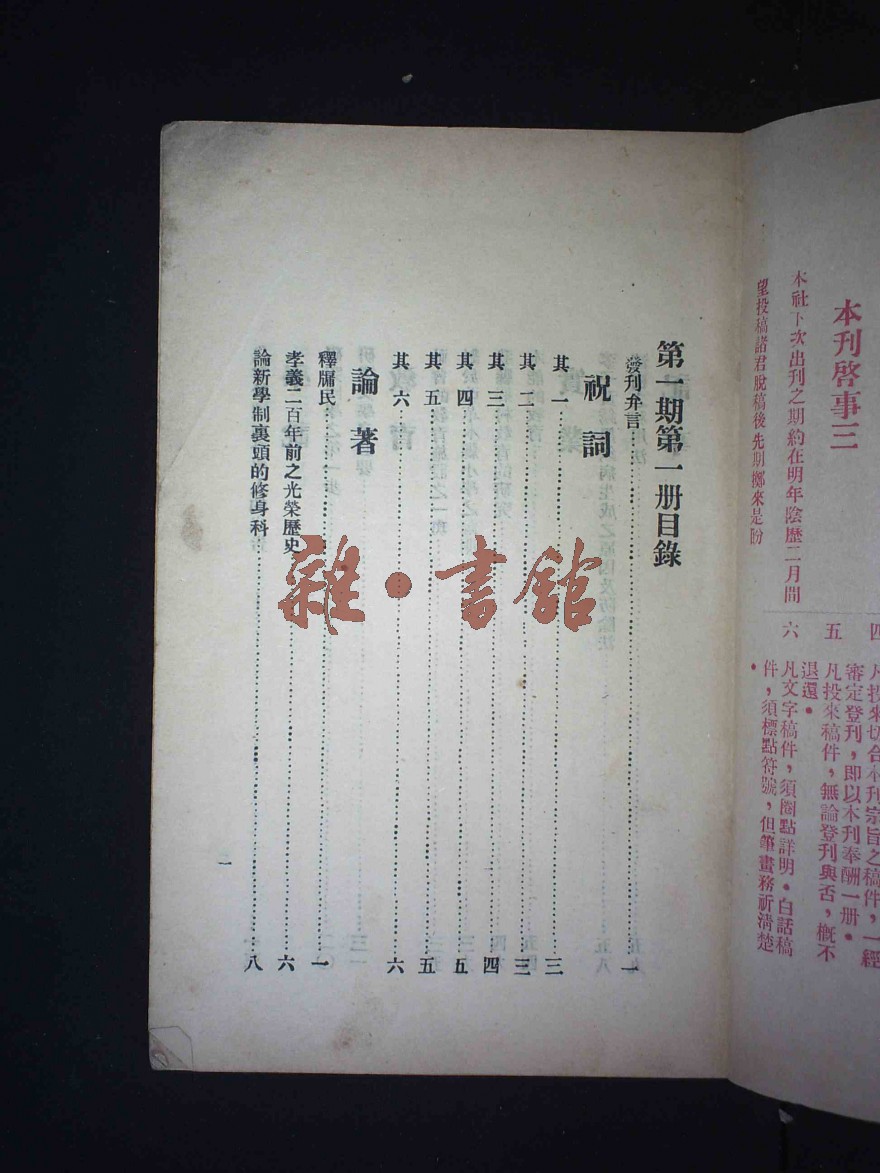 本刊啓事三
本社下次出刊之期約在明年陰歷二月間
望投稿諸君脫稿後先期擲來是盼
四
凡投來切合本刊宗旨之稿件，一經
審定登刊，即以本刊奉酬一册。
五
凡投來稿件，無論登刊與否，概不
退還。
六
凡文字稿件，須圈點詳明。白話稿
件，須標點符號，但筆畫務祈淸楚
。
第一期第一册目錄
發刊弁言 一
祝詞
其一 三
其二 三
其三 四
其四 五
其五 五
其六 六
論著
釋屚民 一
孝義二百年前之光榮歷史 六
論新學制裏頭的修身科 八
一
雜·書館